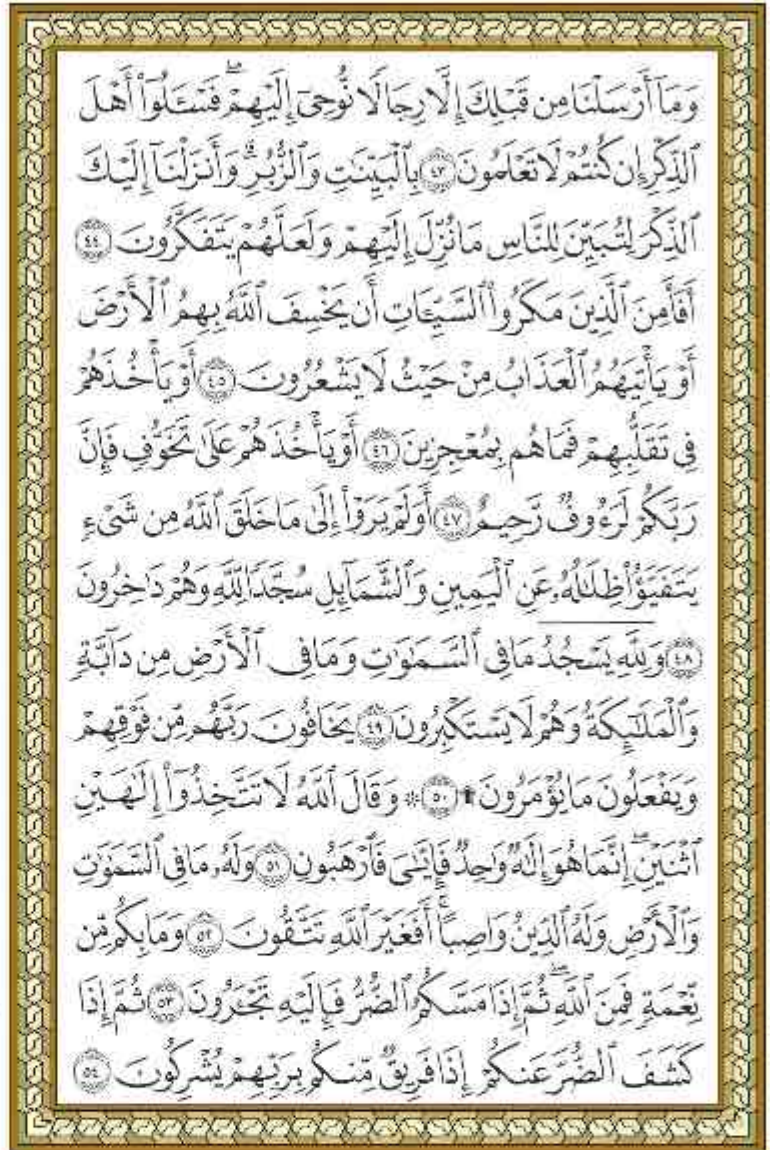 وَمَآ أَرْسَلْنَا مِن قَبْلِكَ إِلَّا رِجَالًا نُّوحِىٓ إِلَيْهِمْ ۖ فَسْـَٔلُوٓا۟ أَهْلَ
ٱلذِّكْرِ إِن كُنتُمْ لَا تَعْلَمُونَ ٤٣ بِٱلْبَيِّنَـٰتِ وَٱلزُّبُرِ ۗ وَأَنزَلْنَآ إِلَيْكَ
ٱلذِّكْرَ لِتُبَيِّنَ لِلنَّاسِ مَا نُزِّلَ إِلَيْهِمْ وَلَعَلَّهُمْ يَتَفَكَّرُونَ ٤٤
أَفَأَمِنَ ٱلَّذِينَ مَكَرُوا۟ ٱلسَّيِّـَٔاتِ أَن يَخْسِفَ ٱللَّهُ بِهِمُ ٱلْأَرْضَ
أَوْ يَأْتِيَهُمُ ٱلْعَذَابُ مِنْ حَيْثُ لَا يَشْعُرُونَ ٤٥ أَوْ يَأْخُذَهُمْ
فِى تَقَلُّبِهِمْ فَمَا هُم بِمُعْجِزِينَ ٤٦ أَوْ يَأْخُذَهُمْ عَلَىٰ تَخَوُّفٍ فَإِنَّ
رَبَّكُمْ لَرَءُوفٌ رَّحِيمٌ ٤٧ أَوَلَمْ يَرَوْا۟ إِلَىٰ مَا خَلَقَ ٱللَّهُ مِن شَىْءٍ
يَتَفَيَّؤُا۟ ظِلَـٰلُهُۥ عَنِ ٱلْيَمِينِ وَٱلشَّمَآئِلِ سُجَّدًا لِّلَّهِ وَهُمْ دَٰخِرُونَ
٤٨ وَلِلَّهِ يَسْجُدُ مَا فِى ٱلسَّمَـٰوَٰتِ وَمَا فِى ٱلْأَرْضِ مِن دَآبَّةٍ
وَٱلْمَلَـٰٓئِكَةُ وَهُمْ لَا يَسْتَكْبِرُونَ ٤٩ يَخَافُونَ رَبَّهُم مِّن فَوْقِهِمْ
وَيَفْعَلُونَ مَا يُؤْمَرُونَ ۩ ٥٠ ۞ وَقَالَ ٱللَّهُ لَا تَتَّخِذُوٓا۟ إِلَـٰهَيْنِ
ٱثْنَيْنِ ۖ إِنَّمَا هُوَ إِلَـٰهٌ وَٰحِدٌ ۖ فَإِيَّـٰىَ فَٱرْهَبُونِ ٥١ وَلَهُۥ مَا فِى ٱلسَّمَـٰوَٰتِ
وَٱلْأَرْضِ وَلَهُ ٱلدِّينُ وَاصِبًا ۚ أَفَغَيْرَ ٱللَّهِ تَتَّقُونَ ٥٢ وَمَا بِكُم مِّن
نِّعْمَةٍ فَمِنَ ٱللَّهِ ۖ ثُمَّ إِذَا مَسَّكُمُ ٱلضُّرُّ فَإِلَيْهِ تَجْـَٔرُونَ ٥٣ ثُمَّ إِذَا
كَشَفَ ٱلضُّرَّ عَنكُمْ إِذَا فَرِيقٌ مِّنكُم بِرَبِّهِمْ يُشْرِكُونَ ٥٤